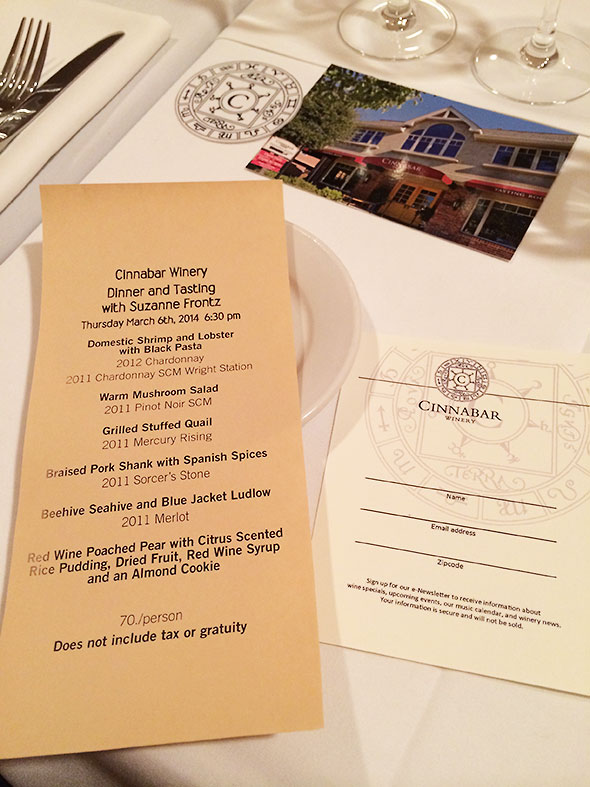 CINNABAR
TASTING ROOM
C
TERRA
Cinnabar Winery
Dinner and Tasting
with Suzanne Frontz
Thursday March 6th, 2014 6:30 pm
Domestic Shrimp and Lobster
with Black Pasta
2012 Chardonnay
2011 Chardonnay SCM Wright Station
Warm Mushroom Salad
2011 Pinot Noir SCM
Grilled Stuffed Quail
2011 Mercury Rising
Braised Pork Shank with Spanish Spices
2011 Sorcer's Stone
Beehive Seahive and Blue Jacket Ludlow
2011 Merlot
Red Wine Poached Pear with Citrus Scented
Rice Pudding, Dried Fruit, Red Wine Syrup
and an Almond Cookie
70./person
Does not include tax or gratuity
C
CINNABAR
WINERY
TERRA
Name
Email address
Zipcode
Sign up for our e-Newsletter to receive information about
wine specials, upcoming events, our music calendar, and winery news.
Your information is secure and will not be sold.